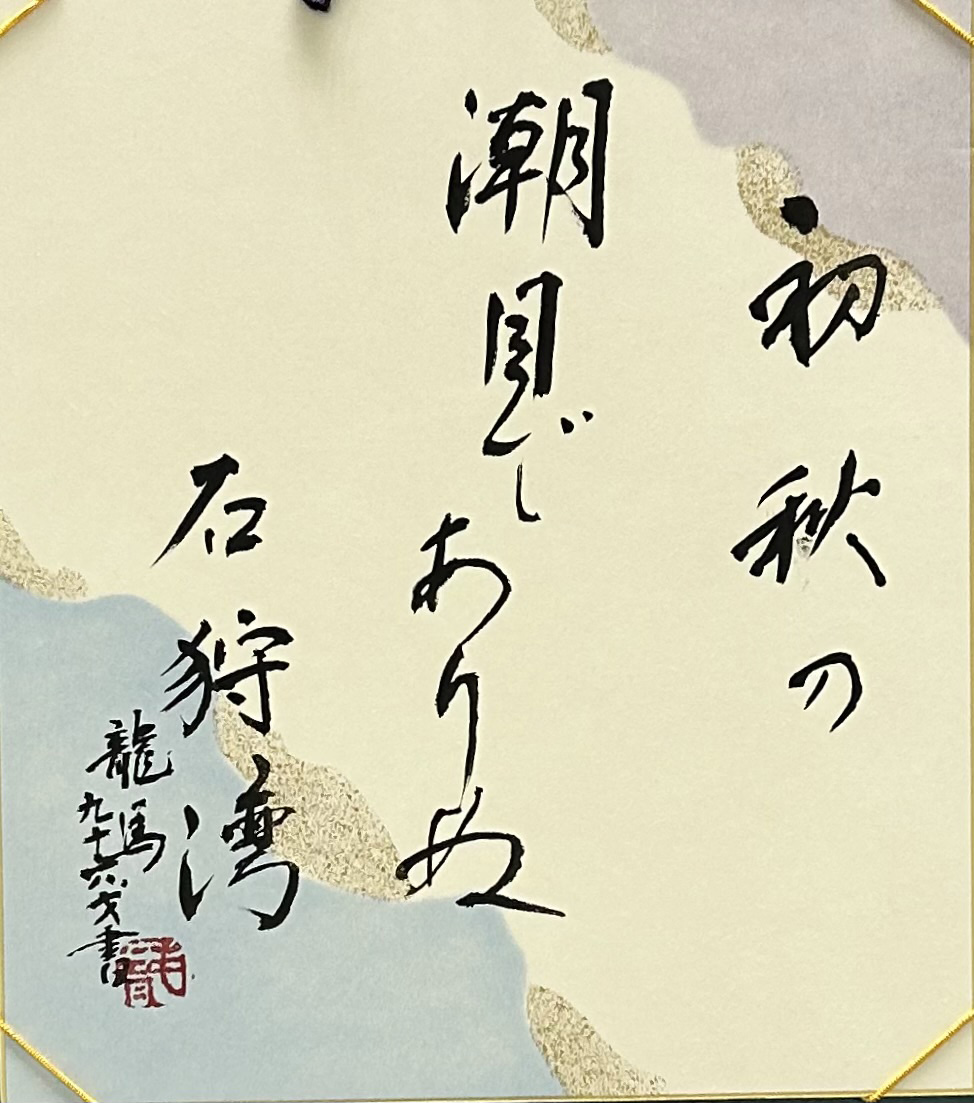 初秋の
潮目でありぬ
石狩湾
龍馬
九十六才書